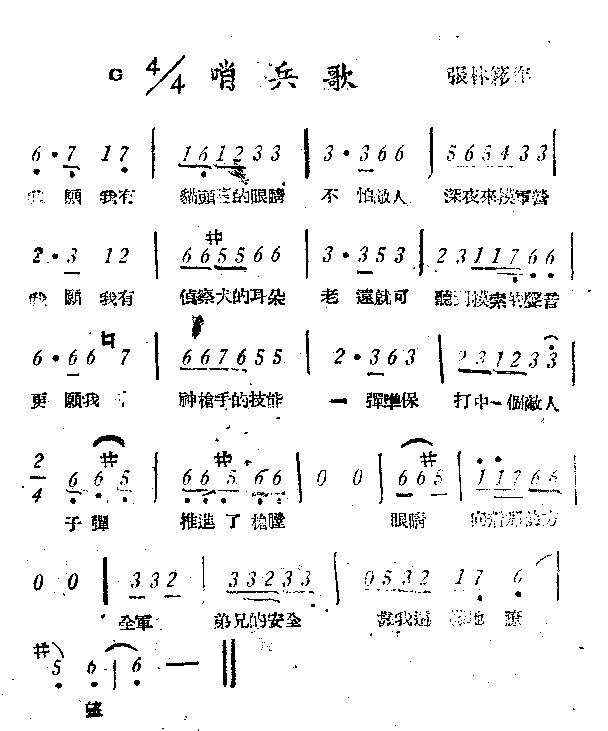 G 4/4 哨兵歌 張林簃作
6·7 17 | 161233 | 3·366 | 565433 |
我願我有 貓頭鷹的眼睛 不怕敵人 深夜來摸軍營
2·3 12 | 66#5566 | 3·353 | 231176 6 |
我願我有 偵察犬的耳朵 老遠就可 聽到摸索的聲音
6·66 7 | 667655 | 2·363 | 231233 |
更願我有 神槍手的技能 一彈準保 打中一個敵人
2/4 66#5 | 66#566 | 0 0 | 66#5 | 111766 |
子彈 推進了槍膛 眼睛
0 0 | 332 | 33233 | 0532 17 6 |
全軍 弟兄的安全 靠我
#5 6 | 6 — ‖
望